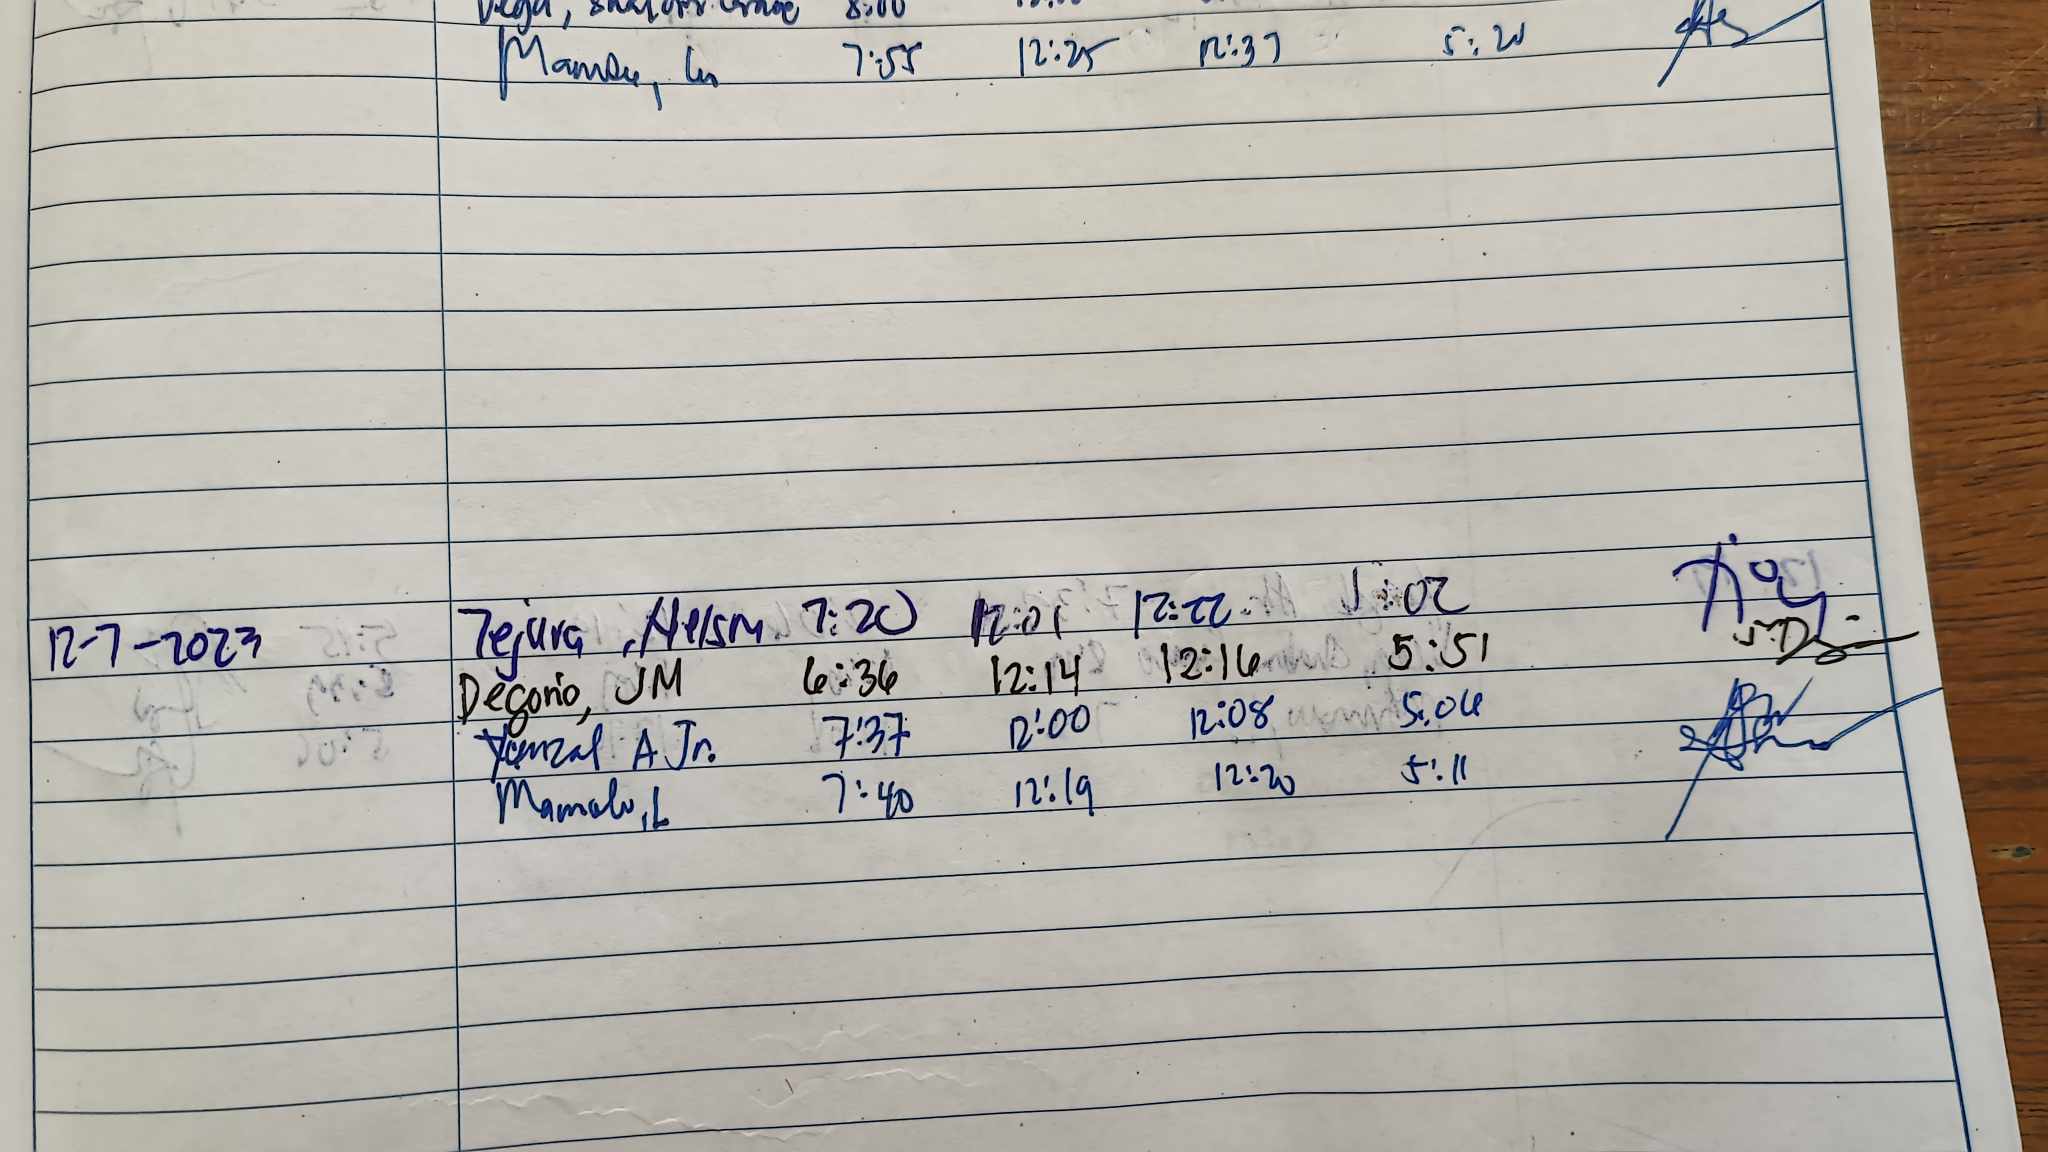 8:00
7:55 12:25 12:37 5:20
12-7-2023 Tejura, Nelson 7:20 12:01 12:22 5:02
Degorio, JM 6:36 12:14 12:16 5:51
Yamzal A Jr. 7:37 12:00 12:08 5:04
Mamalo, L 7:40 12:19 12:20 5:11